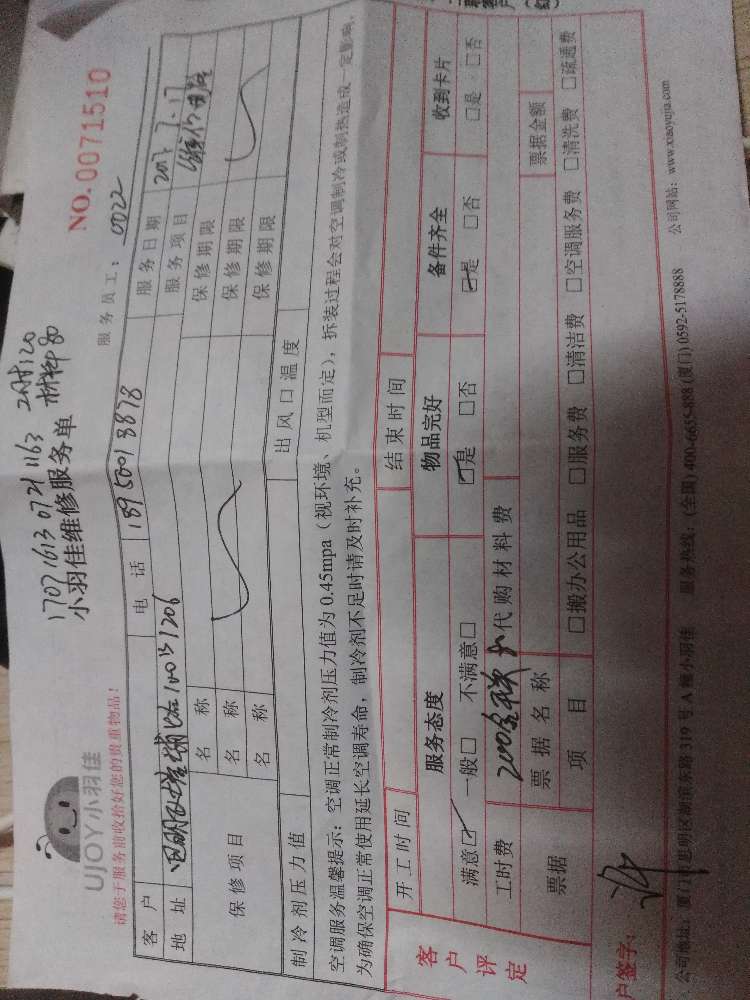 1707161307211163 2时120
材料80
小羽佳维修服务单
NO.0071510
UJOY小羽佳
请您于服务前收拾好您的贵重物品!
服务员工: 0022
客户 电话 18950013878 服务日期 2017.7.17
地址 1206 服务项目
保修项目 名称 保修期限
名称 保修期限
名称 保修期限
制冷剂压力值 出风口温度
空调服务温馨提示:空调正常制冷剂压力值为0.45mpa(视环境、机型而定),拆装过程会对空调制冷或制热造成一定影响,
为确保空调正常使用延长空调寿命,制冷剂不足时请及时补充。
客户评定
开工时间 结束时间
服务态度 物品完好 备件齐全 收到卡片
满意☑ 一般□ 不满意□ ☑是 □否 ☑是 □否 □是 □否
工时费 200 代购材料费
票据 票据名称 票据金额
项目 □搬办公用品 □服务费 □清洁费 □空调服务费 □清洗费 □疏通费
户签字: 许
公司地址:厦门市思明区湖滨东路319号A幢小羽佳 服务热线:(全国)400-6655-888 (厦门)0592-5178888 公司网站:www.xiaoyujia.com